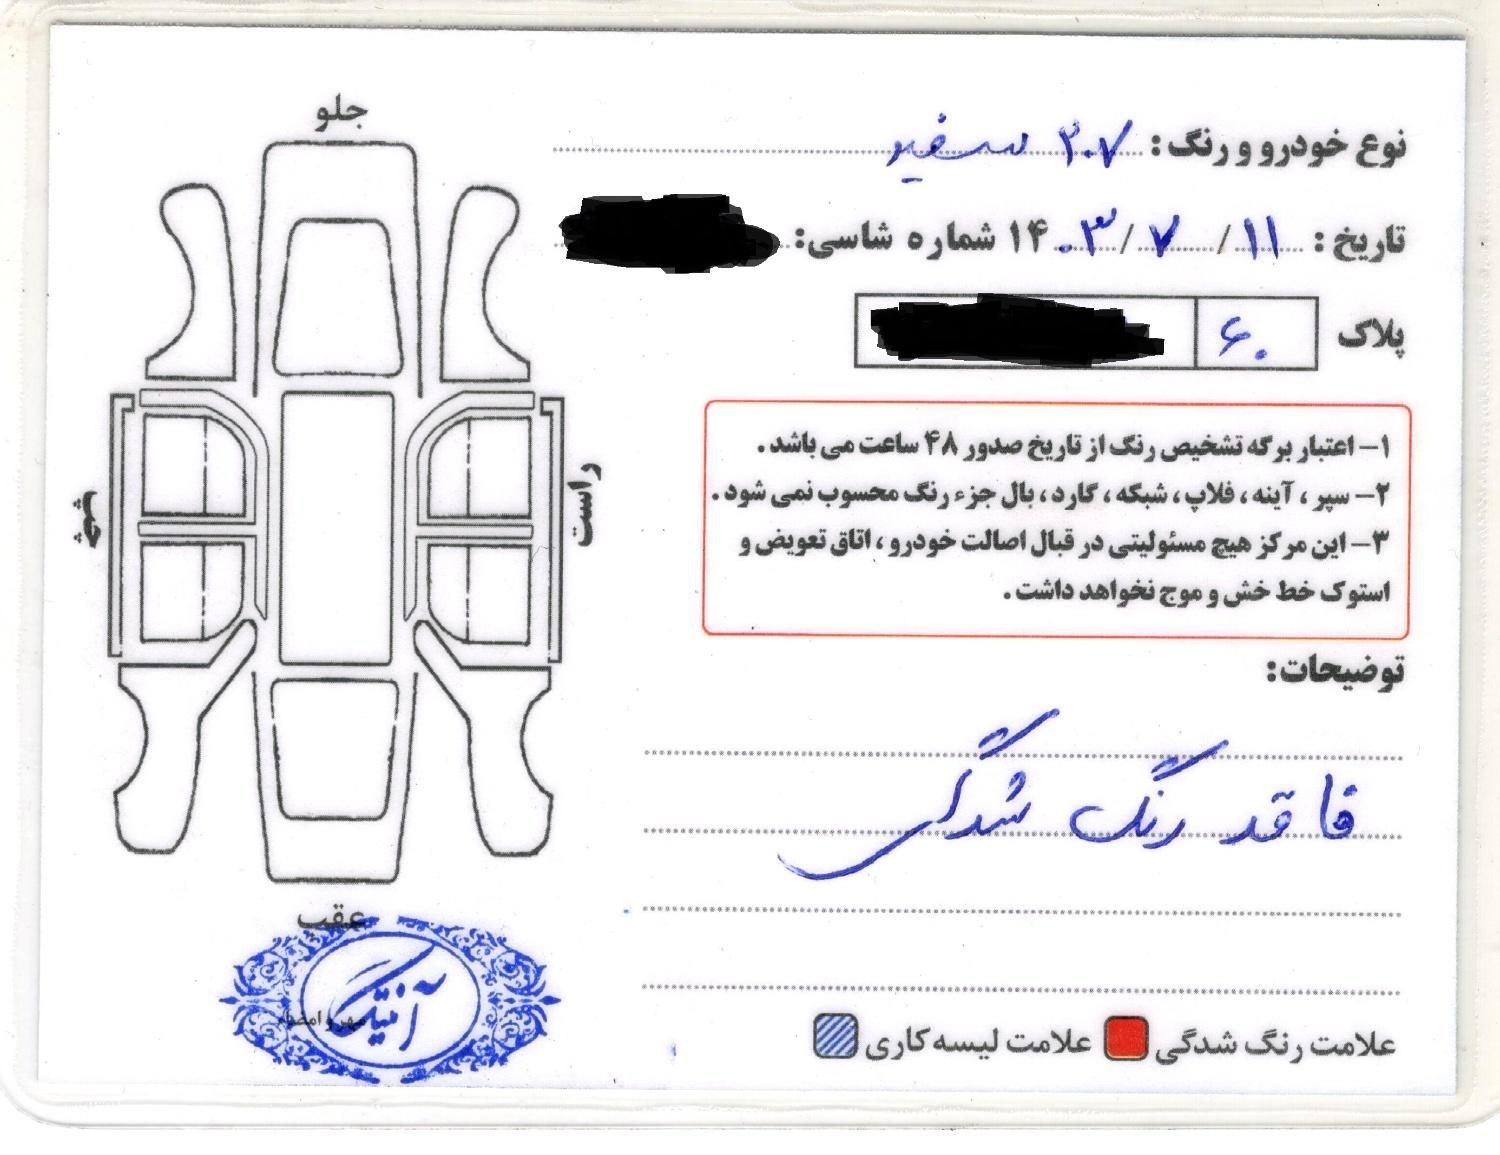 جلو
نوع خودرو و رنگ: ۲۰۷ سفید
تاریخ: ۱۱ / ۷ / ۱۴۰۳ شماره شاسی:
پلاک ۶۰
۱- اعتبار برگه تشخیص رنگ از تاریخ صدور ۴۸ ساعت می باشد.
۲- سپر، آینه، فلاپ، شبکه، گارد، بال جزء رنگ محسوب نمی شود.
۳- این مرکز هیچ مسئولیتی در قبال اصالت خودرو، اتاق تعویض و
استوک خط خش و موج نخواهد داشت.
راست
چپ
توضیحات:
فاقد رنگ شدگی
عقب
مهر و امضاء
آنتیک
علامت رنگ شدگی
علامت لیسه کاری